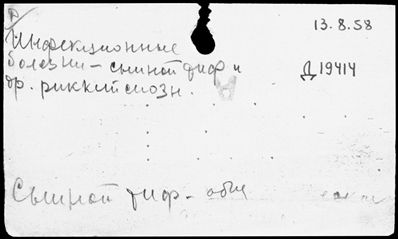 13.8.58
Инфекционные
болезни – сыпной тиф и
др. риккетсиозн.
Д 19414
Сыпной тиф – общ